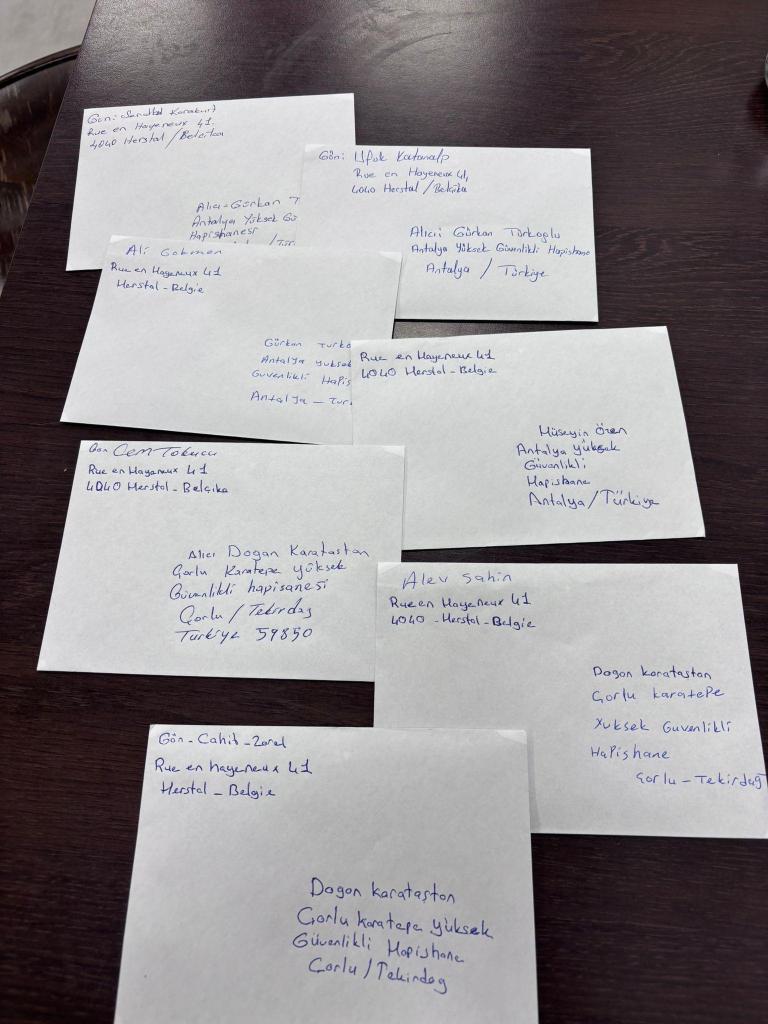 Gön: Karakurt
Rue en Hayeneux 41.
4040 Herstal /
Alıcı - Gürkan T
Antalya Yüksek Gü
Hapishanesi
Gön: Ufuk Katanalp
Rue en Hayeneux 41,
4040 Herstal / Belçika
Alıcı: Gürkan Türkoglu
Antalya Yüksek Güvenlikli Hapishane
Antalya / Türkiye
Ali Gokmen
Rue en Hayeneux 41
Herstal - Belgie
Gürkan Turko
Antalya yuksek
Guvenlikli Hapis
Antalya - Tur
Rue en Hayeneux 41
4040 Herstal - Belgie
Hüseyin Özen
Antalya yüksek
Güvenlikli
Hapishane
Antalya / Türkiye
Gön Cem Tokucu
Rue en Hayeneux 41
4040 Herstal - Belçika
Alıcı Dogan Karataştan
Çorlu Karatepe yüksek
Güvenlikli hapisanesi
Çorlu / Tekirdag
Türkiye 59850
Alev Sahin
Rue en Hayeneux 41
4040 - Herstal - Belgie
Dogan karatastan
Çorlu karatepe
Yuksek Guvenlikli
Hapishane
Çorlu - Tekirdağ
Gön - Cahit - Zorel
Rue en hayeneux 41
Herstal - Belgie
Dogan karataştan
Çorlu karatepe yüksek
Güvenlikli Hapishane
Çorlu / Tekirdag